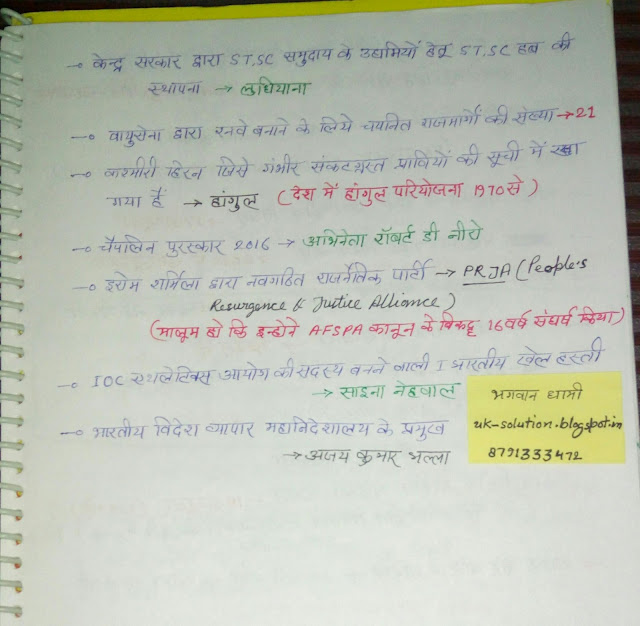 → केन्द्र सरकार द्वारा ST,SC समुदाय के उद्यमियों हेतू ST,SC हब की
स्थापना → लुधियाना
→ वायुसेना द्वारा रनवे बनाने के लिये चयनित राजमार्गों की संख्या → 21
→ काश्मीरी हिरन जिसे गंभीर संकटग्रस्त प्राणियों की सूची में रखा
गया हैं → हांगुल (देश में हांगुल परियोजना 1970 से)
→ चैपलिन पुरस्कार 2016 → अभिनेता रॉबर्ट डी नीरो
→ इरोम शर्मिला द्वारा नवगठित राजनैतिक पार्टी → PRJA (People's
Resurgence & Justice Alliance)
(मालूम हो कि इन्होने AFSPA कानून के विरूद्ध 16 वर्ष संघर्ष किया)
→ IOC एथलेटिक्स आयोग की सदस्य बनने वाली I भारतीय खेल हस्ती
→ साइना नेहवाल
→ भारतीय विदेश व्यापार महानिदेशालय के प्रमुख
→ अजय कुमार भल्ला
भगवान धामी
uk-solution.blogspot.in
8791333472